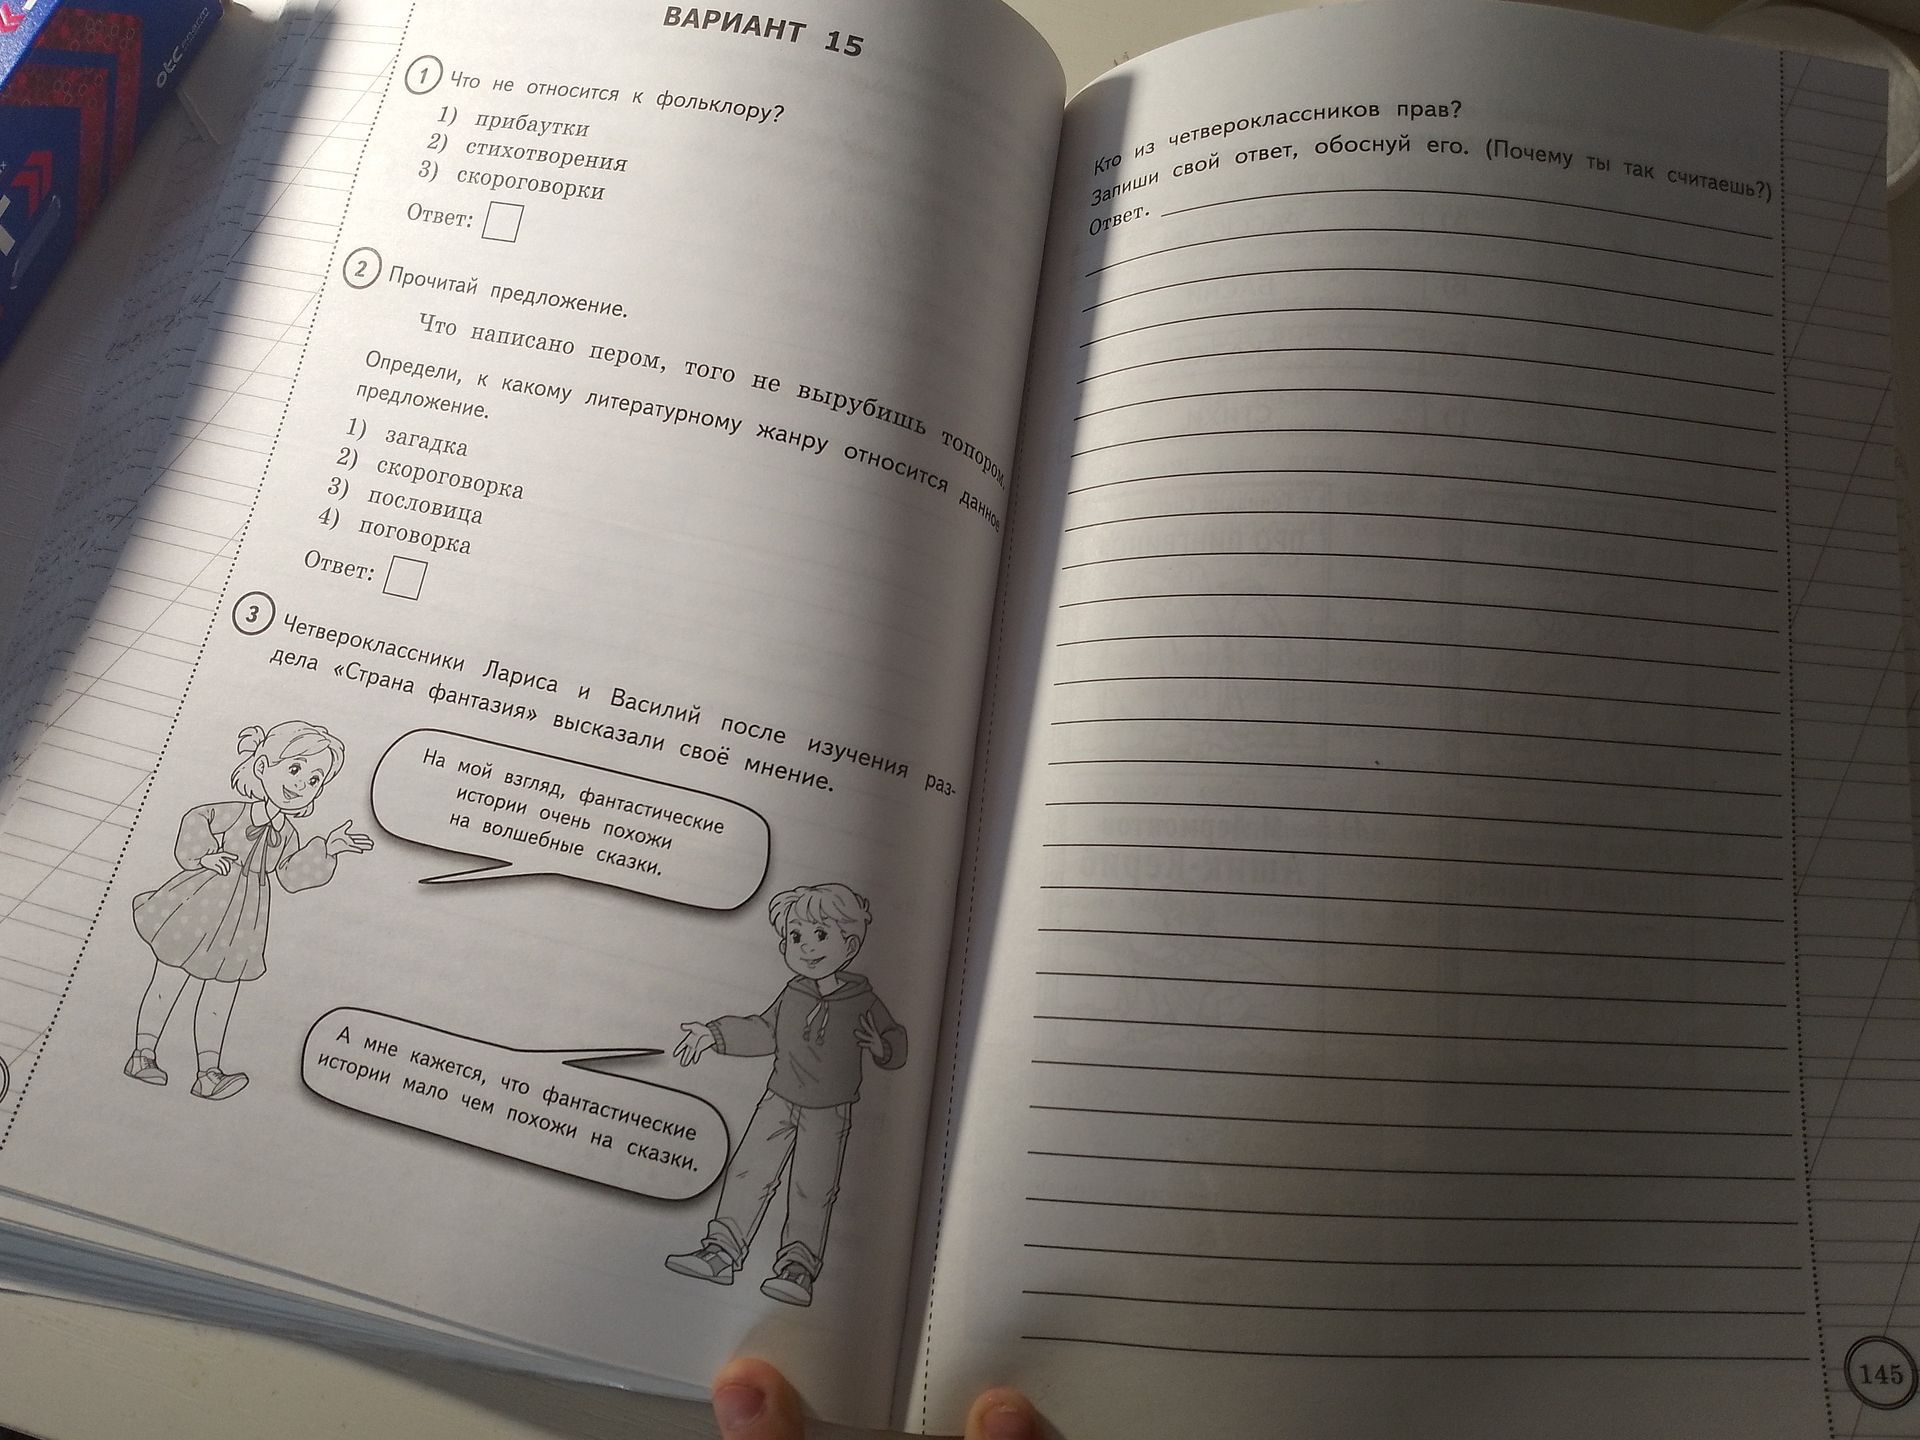 ВАРИАНТ 15
1 Что не относится к фольклору?
1) прибаутки
2) стихотворения
3) скороговорки
Ответ:
2 Прочитай предложение.
Что написано пером, того не вырубишь топором.
Определи, к какому литературному жанру относится данное
предложение.
1) загадка
2) скороговорка
3) пословица
4) поговорка
Ответ:
3 Четвероклассники Лариса и Василий после изучения раз-
дела «Страна фантазия» высказали своё мнение.
На мой взгляд, фантастические
истории очень похожи
на волшебные сказки.
А мне кажется, что фантастические
истории мало чем похожи на сказки.
Кто из четвероклассников прав?
Запиши свой ответ, обоснуй его. (Почему ты так считаешь?)
Ответ.
145